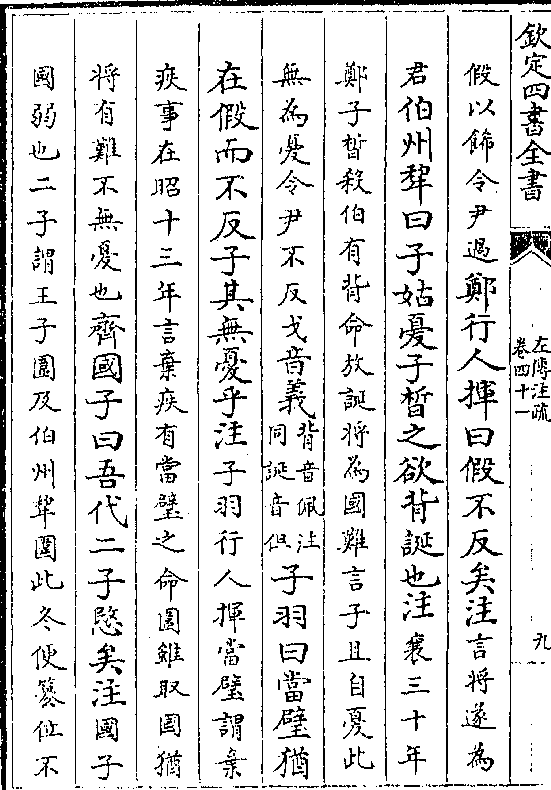 欽定四書全書
左傳注疏
卷四十一
九
假以飾令尹過鄭行人揮曰假不反矣注言將遂為
君伯州犂曰子姑憂子晳之欲背誕也注襄三十年
鄭子晳殺伯有背命放誕將為國難言子且自憂此
無為憂令尹不反戈音義背音佩注
同誕音但子羽曰當璧猶
在假而不反子其無憂乎注子羽行人揮當璧謂棄
疾事在昭十三年言棄疾有當璧之命圍雖取國猶
將有難不無憂也齊國子曰吾代二子愍矣注國子
國弱也二子謂王子圍及伯州犂圍此冬便簒位不